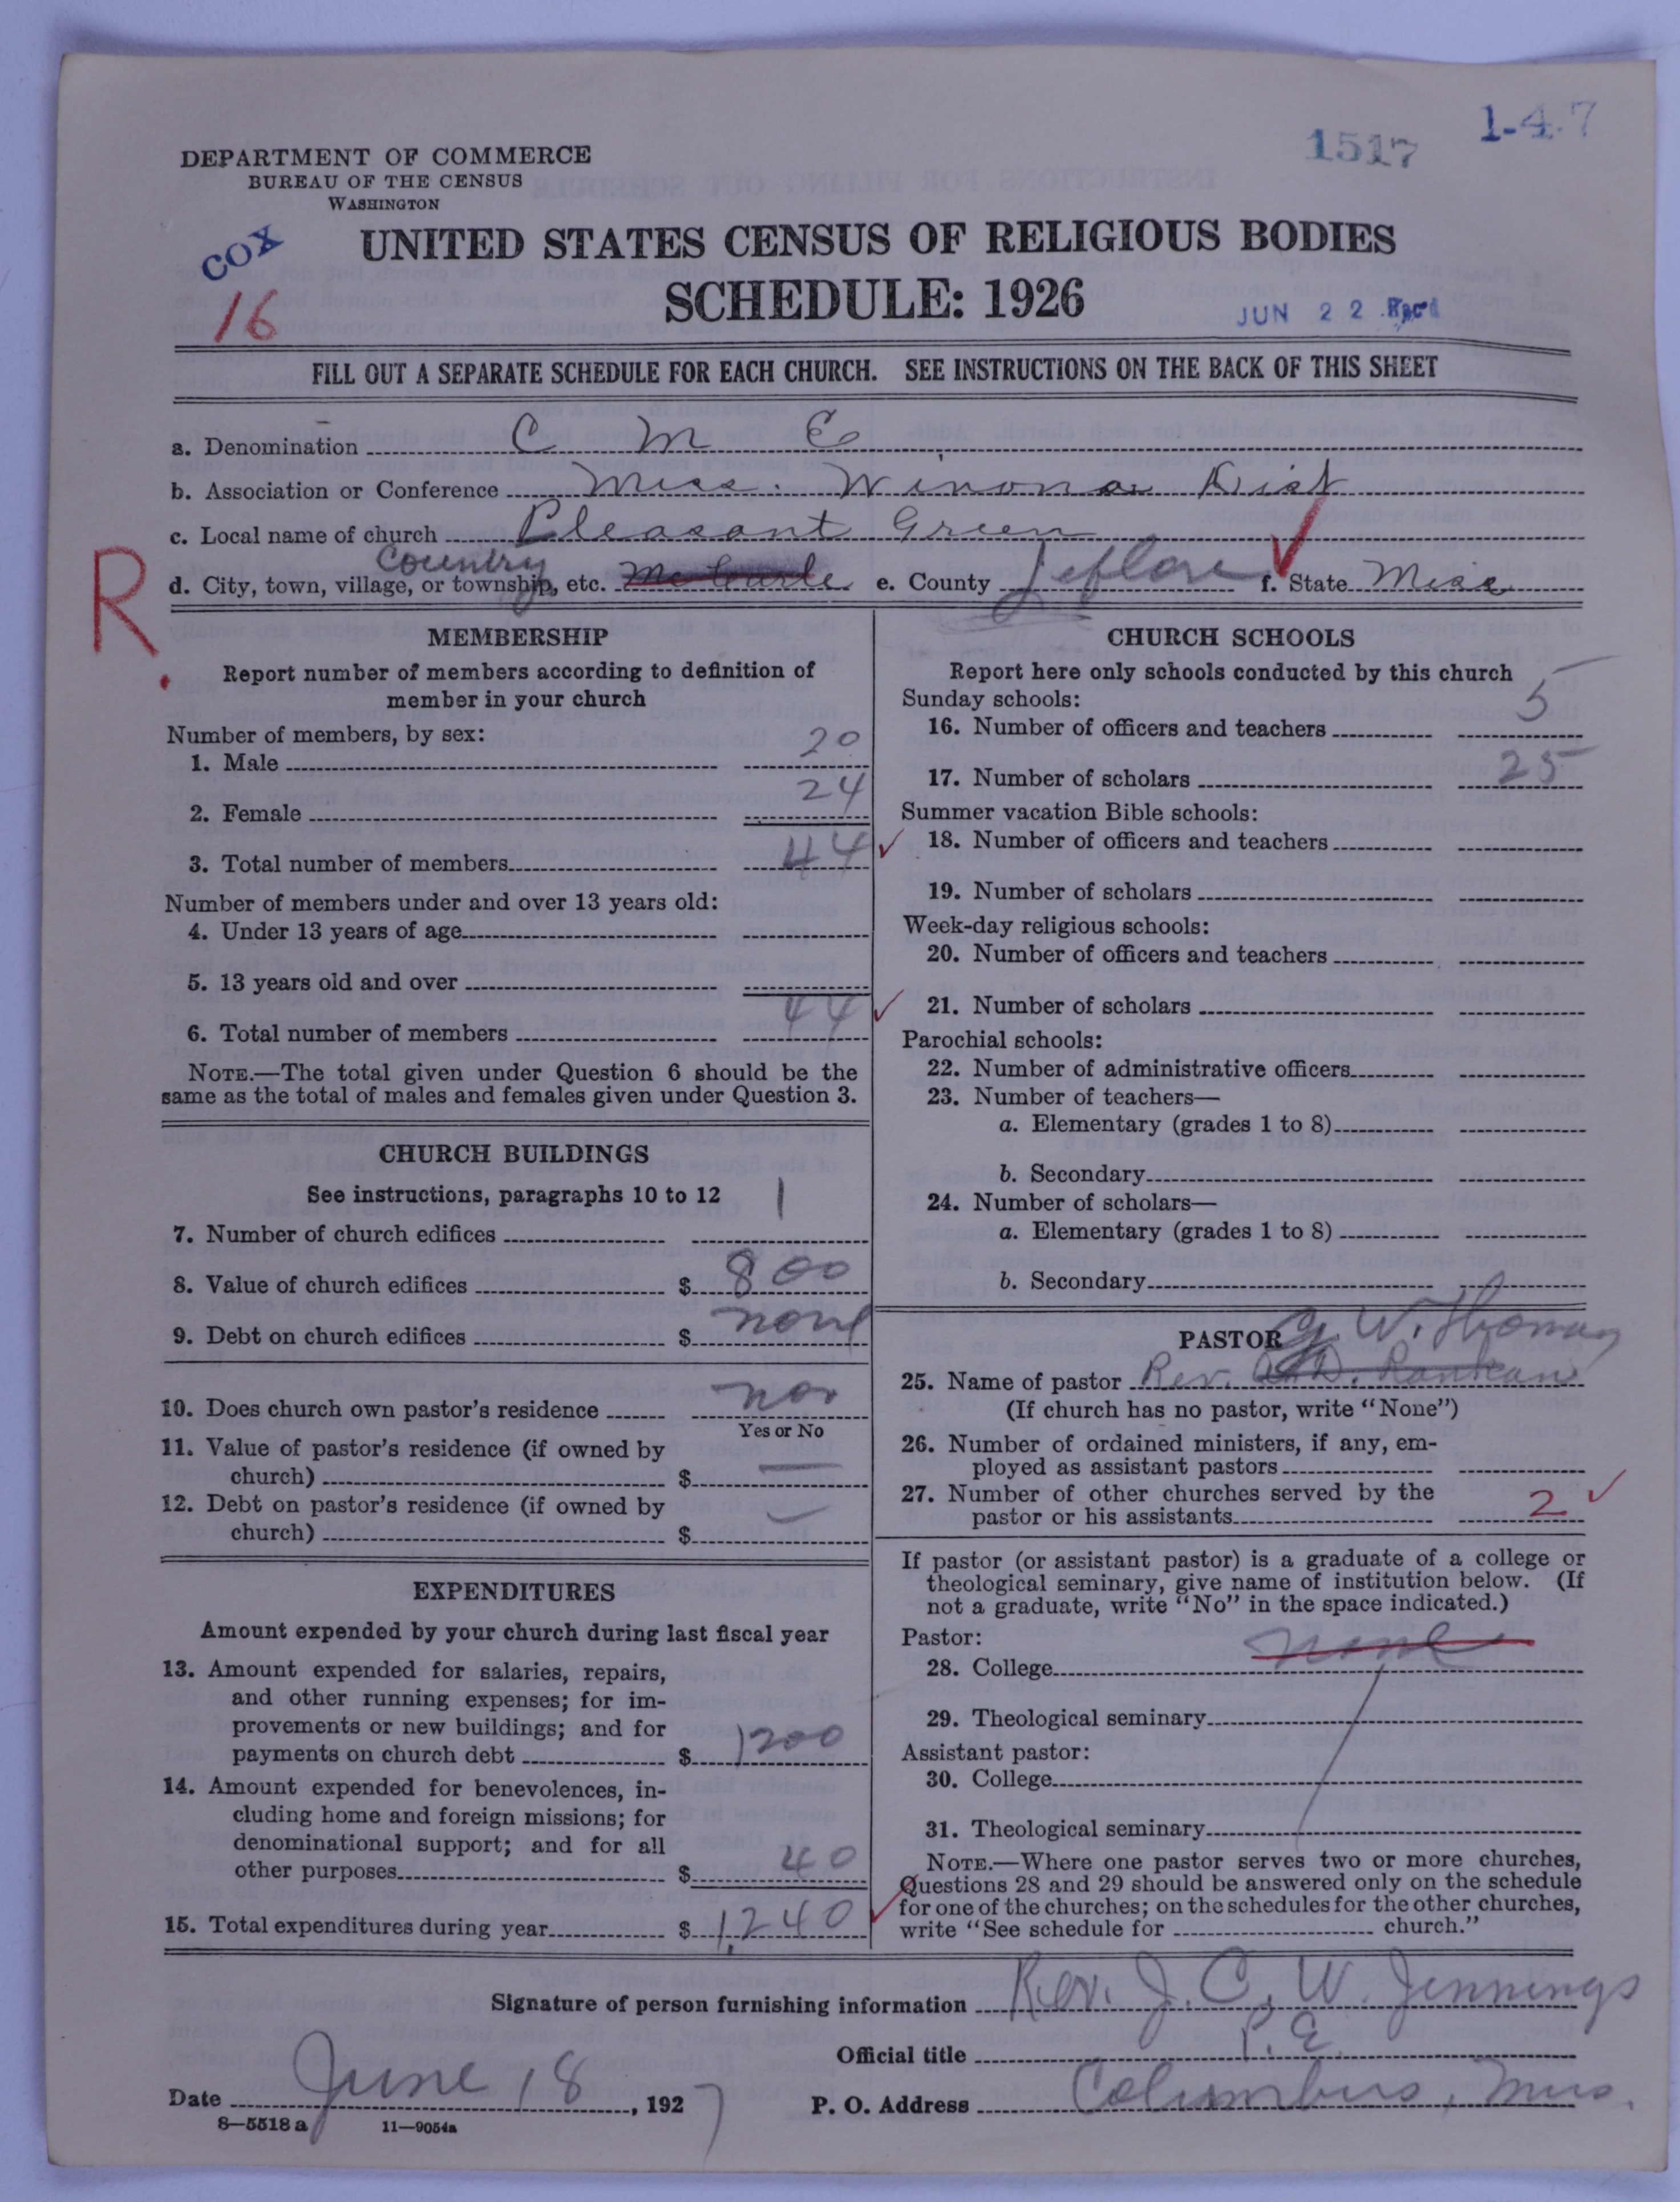 1517
1-4-7
DEPARTMENT OF COMMERCE
BUREAU OF THE CENSUS
WASHINGTON
COX
16
UNITED STATES CENSUS OF RELIGIOUS BODIES
SCHEDULE: 1926
JUN 22 Rec'd
FILL OUT A SEPARATE SCHEDULE FOR EACH CHURCH. SEE INSTRUCTIONS ON THE BACK OF THIS SHEET
a. Denomination C M E
b. Association or Conference Miss. Winona Dist
c. Local name of church Pleasant Green
Country
d. City, town, village, or township, etc. e. County Leflore f. State Miss
R.
MEMBERSHIP
Report number of members according to definition of
member in your church
Number of members, by sex:
1. Male 20
2. Female 24
3. Total number of members 44
Number of members under and over 13 years old:
4. Under 13 years of age
5. 13 years old and over
6. Total number of members 44
NOTE.—The total given under Question 6 should be the
same as the total of males and females given under Question 3.
CHURCH BUILDINGS
See instructions, paragraphs 10 to 12
7. Number of church edifices 1
8. Value of church edifices $ 800
9. Debt on church edifices $ none
10. Does church own pastor's residence
Yes or No
11. Value of pastor's residence (if owned by
church) $ —
12. Debt on pastor's residence (if owned by
church) $ —
EXPENDITURES
Amount expended by your church during last fiscal year
13. Amount expended for salaries, repairs,
and other running expenses; for im-
provements or new buildings; and for
payments on church debt $ 1200
14. Amount expended for benevolences, in-
cluding home and foreign missions; for
denominational support; and for all
other purposes $ 40
15. Total expenditures during year $ 1,240
CHURCH SCHOOLS
Report here only schools conducted by this church
Sunday schools:
16. Number of officers and teachers 5
17. Number of scholars 25
Summer vacation Bible schools:
18. Number of officers and teachers
19. Number of scholars
Week-day religious schools:
20. Number of officers and teachers
21. Number of scholars
Parochial schools:
22. Number of administrative officers
23. Number of teachers—
a. Elementary (grades 1 to 8)
b. Secondary
24. Number of scholars—
a. Elementary (grades 1 to 8)
b. Secondary
PASTOR G. W. Thomas
25. Name of pastor Rev. A. D. Rankan
(If church has no pastor, write "None")
26. Number of ordained ministers, if any, em-
ployed as assistant pastors
27. Number of other churches served by the
pastor or his assistants 2
If pastor (or assistant pastor) is a graduate of a college or
theological seminary, give name of institution below. (If
not a graduate, write "No" in the space indicated.)
Pastor:
28. College none
29. Theological seminary
Assistant pastor:
30. College
31. Theological seminary
NOTE.—Where one pastor serves two or more churches,
Questions 28 and 29 should be answered only on the schedule
for one of the churches; on the schedules for the other churches,
write "See schedule for church."
Signature of person furnishing information Rev. J. C. W. Jennings
Official title P. E.
Date June 18, 1927 P. O. Address Columbus, Miss.
8—5518a 11—9054a